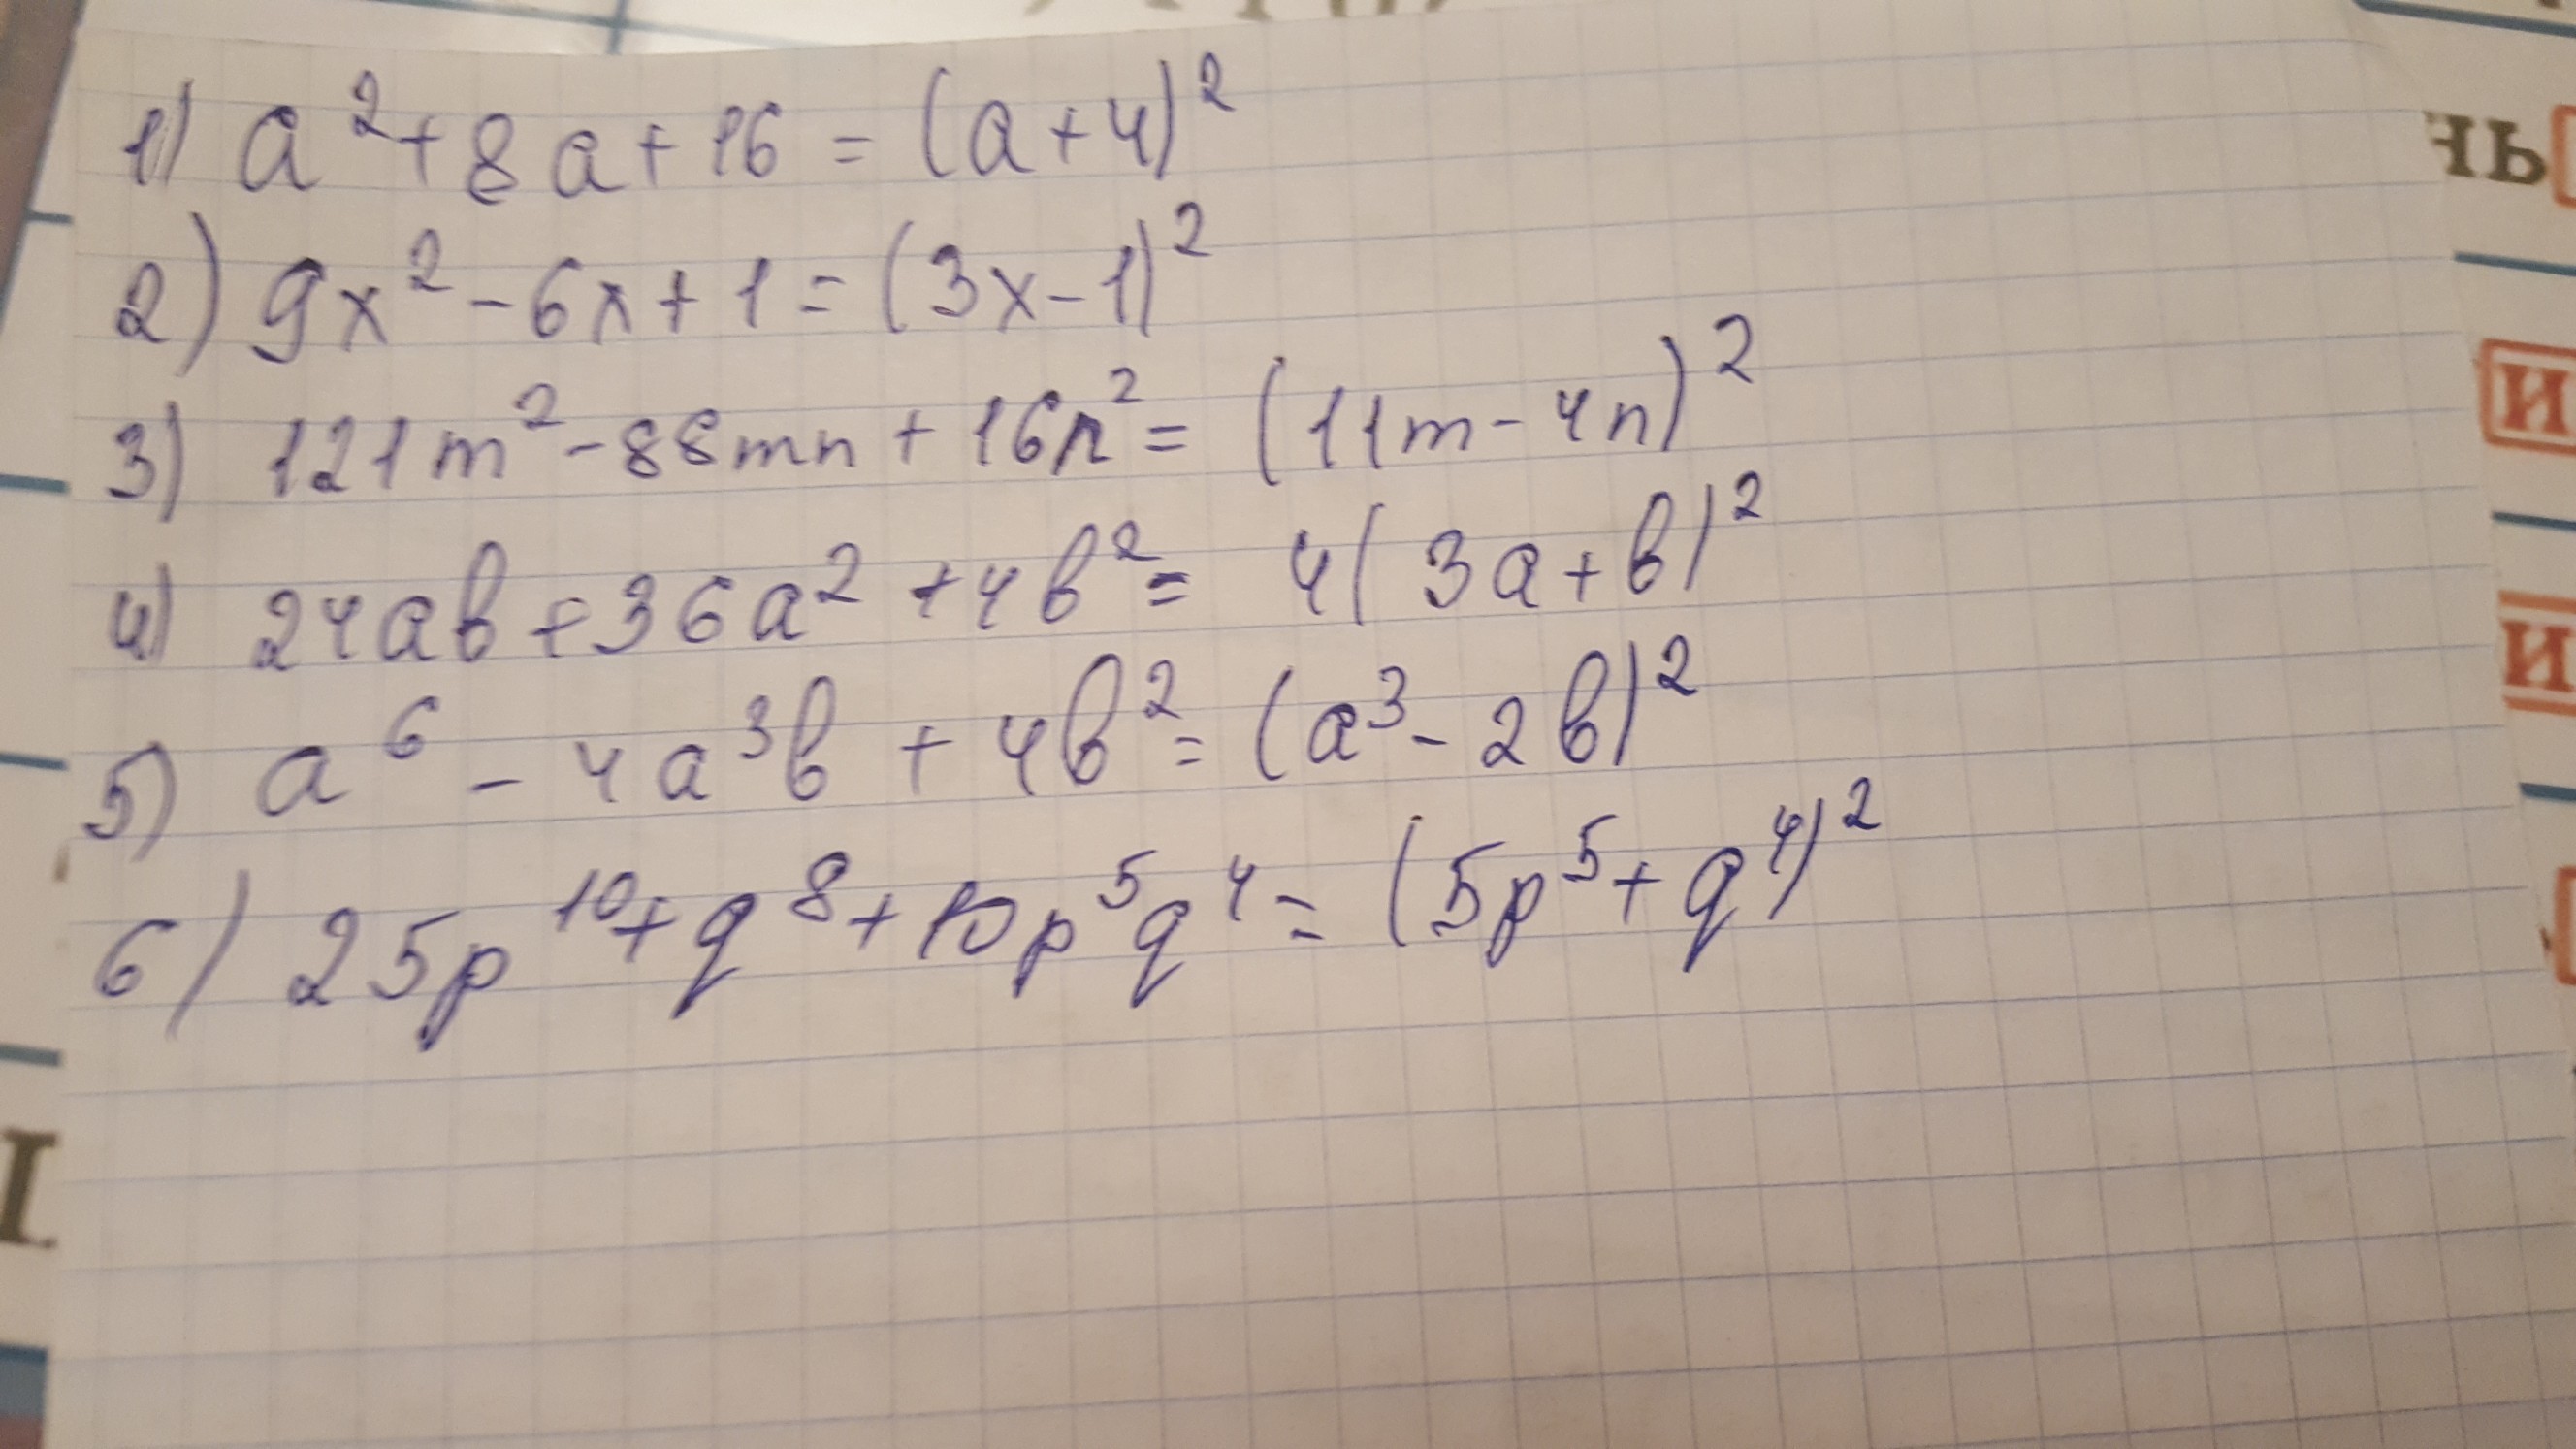 1) a²+8a+16 = (a+4)²
2) 9x²-6x+1=(3x-1)²
3) 121m²-88mn+16n²= (11m-4n)²
4) 24ab+36a²+4b²= 4(3a+b)²
5) a⁶-4a³b+4b²=(a³-2b)²
6) 25p¹⁰+q⁸+10p⁵q⁴=(5p⁵+q⁴)²
нь
и
и